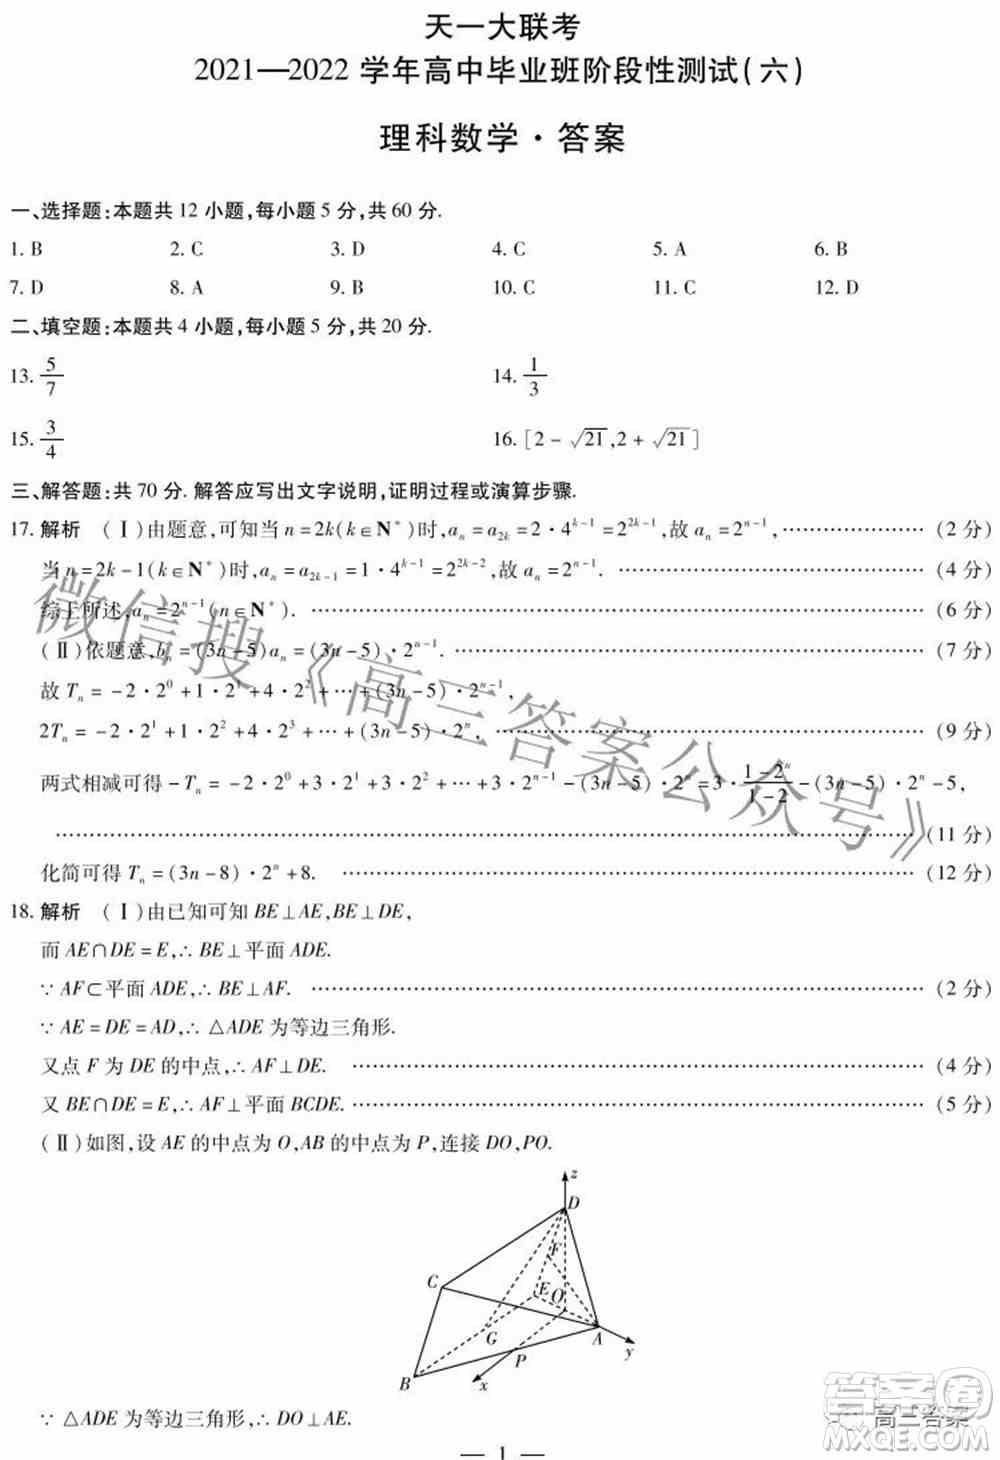 天一大联考
2021—2022 学年高中毕业班阶段性测试(六)
理科数学·答案
一、选择题:本题共 12 小题,每小题 5 分,共 60 分.
1. B 2. C 3. D 4. C 5. A 6. B
7. D 8. A 9. B 10. C 11. C 12. D
二、填空题:本题共 4 小题,每小题 5 分,共 20 分.
13. 5/7 14. 1/3
15. 3/4 16. [2-√21,2+√21]
三、解答题:共 70 分. 解答应写出文字说明,证明过程或演算步骤.
17. 解析 (Ⅰ)由题意,可知当 n=2k(k∈N*)时,aₙ=a₂ₖ=2·4^(k-1)=2^(2k-1),故 aₙ=2^(n-1),…………………(2 分)
当 n=2k-1(k∈N*)时,aₙ=a₂ₖ₋₁=1·4^(k-1)=2^(2k-2),故 aₙ=2^(n-1). …………………(4 分)
综上所述,aₙ=2^(n-1)(n∈N*). …………………(6 分)
(Ⅱ)依题意,bₙ=(3n-5)aₙ=(3n-5)·2^(n-1). …………………(7 分)
故 Tₙ=-2·2^0+1·2^1+4·2^2+…+(3n-5)·2^(n-1),
2Tₙ=-2·2^1+1·2^2+4·2^3+…+(3n-5)·2^n, …………………(9 分)
两式相减可得-Tₙ=-2·2^0+3·2^1+3·2^2+…+3·2^(n-1)-(3n-5)·2^n=3·(1-2^n)/(1-2)-(3n-5)·2^n-5,
…………………(11 分)
化简可得 Tₙ=(3n-8)·2^n+8. …………………(12 分)
18. 解析 (Ⅰ)由已知可知 BE⊥AE,BE⊥DE,
而 AE∩DE=E,∴BE⊥平面 ADE.
∵AF⊂平面 ADE,∴BE⊥AF. …………………(2 分)
∵AE=DE=AD,∴△ADE 为等边三角形.
又点 F 为 DE 的中点,∴AF⊥DE. …………………(4 分)
又 BE∩DE=E,∴AF⊥平面 BCDE. …………………(5 分)
(Ⅱ)如图,设 AE 的中点为 O,AB 的中点为 P,连接 DO,PO.
z
D
F
C
E
O
G
A
P
y
B
x
∵△ADE 为等边三角形,∴DO⊥AE.
— 1 —
微信搜《高三答案公众号》
高三答案
答案圈
MXQE.COM